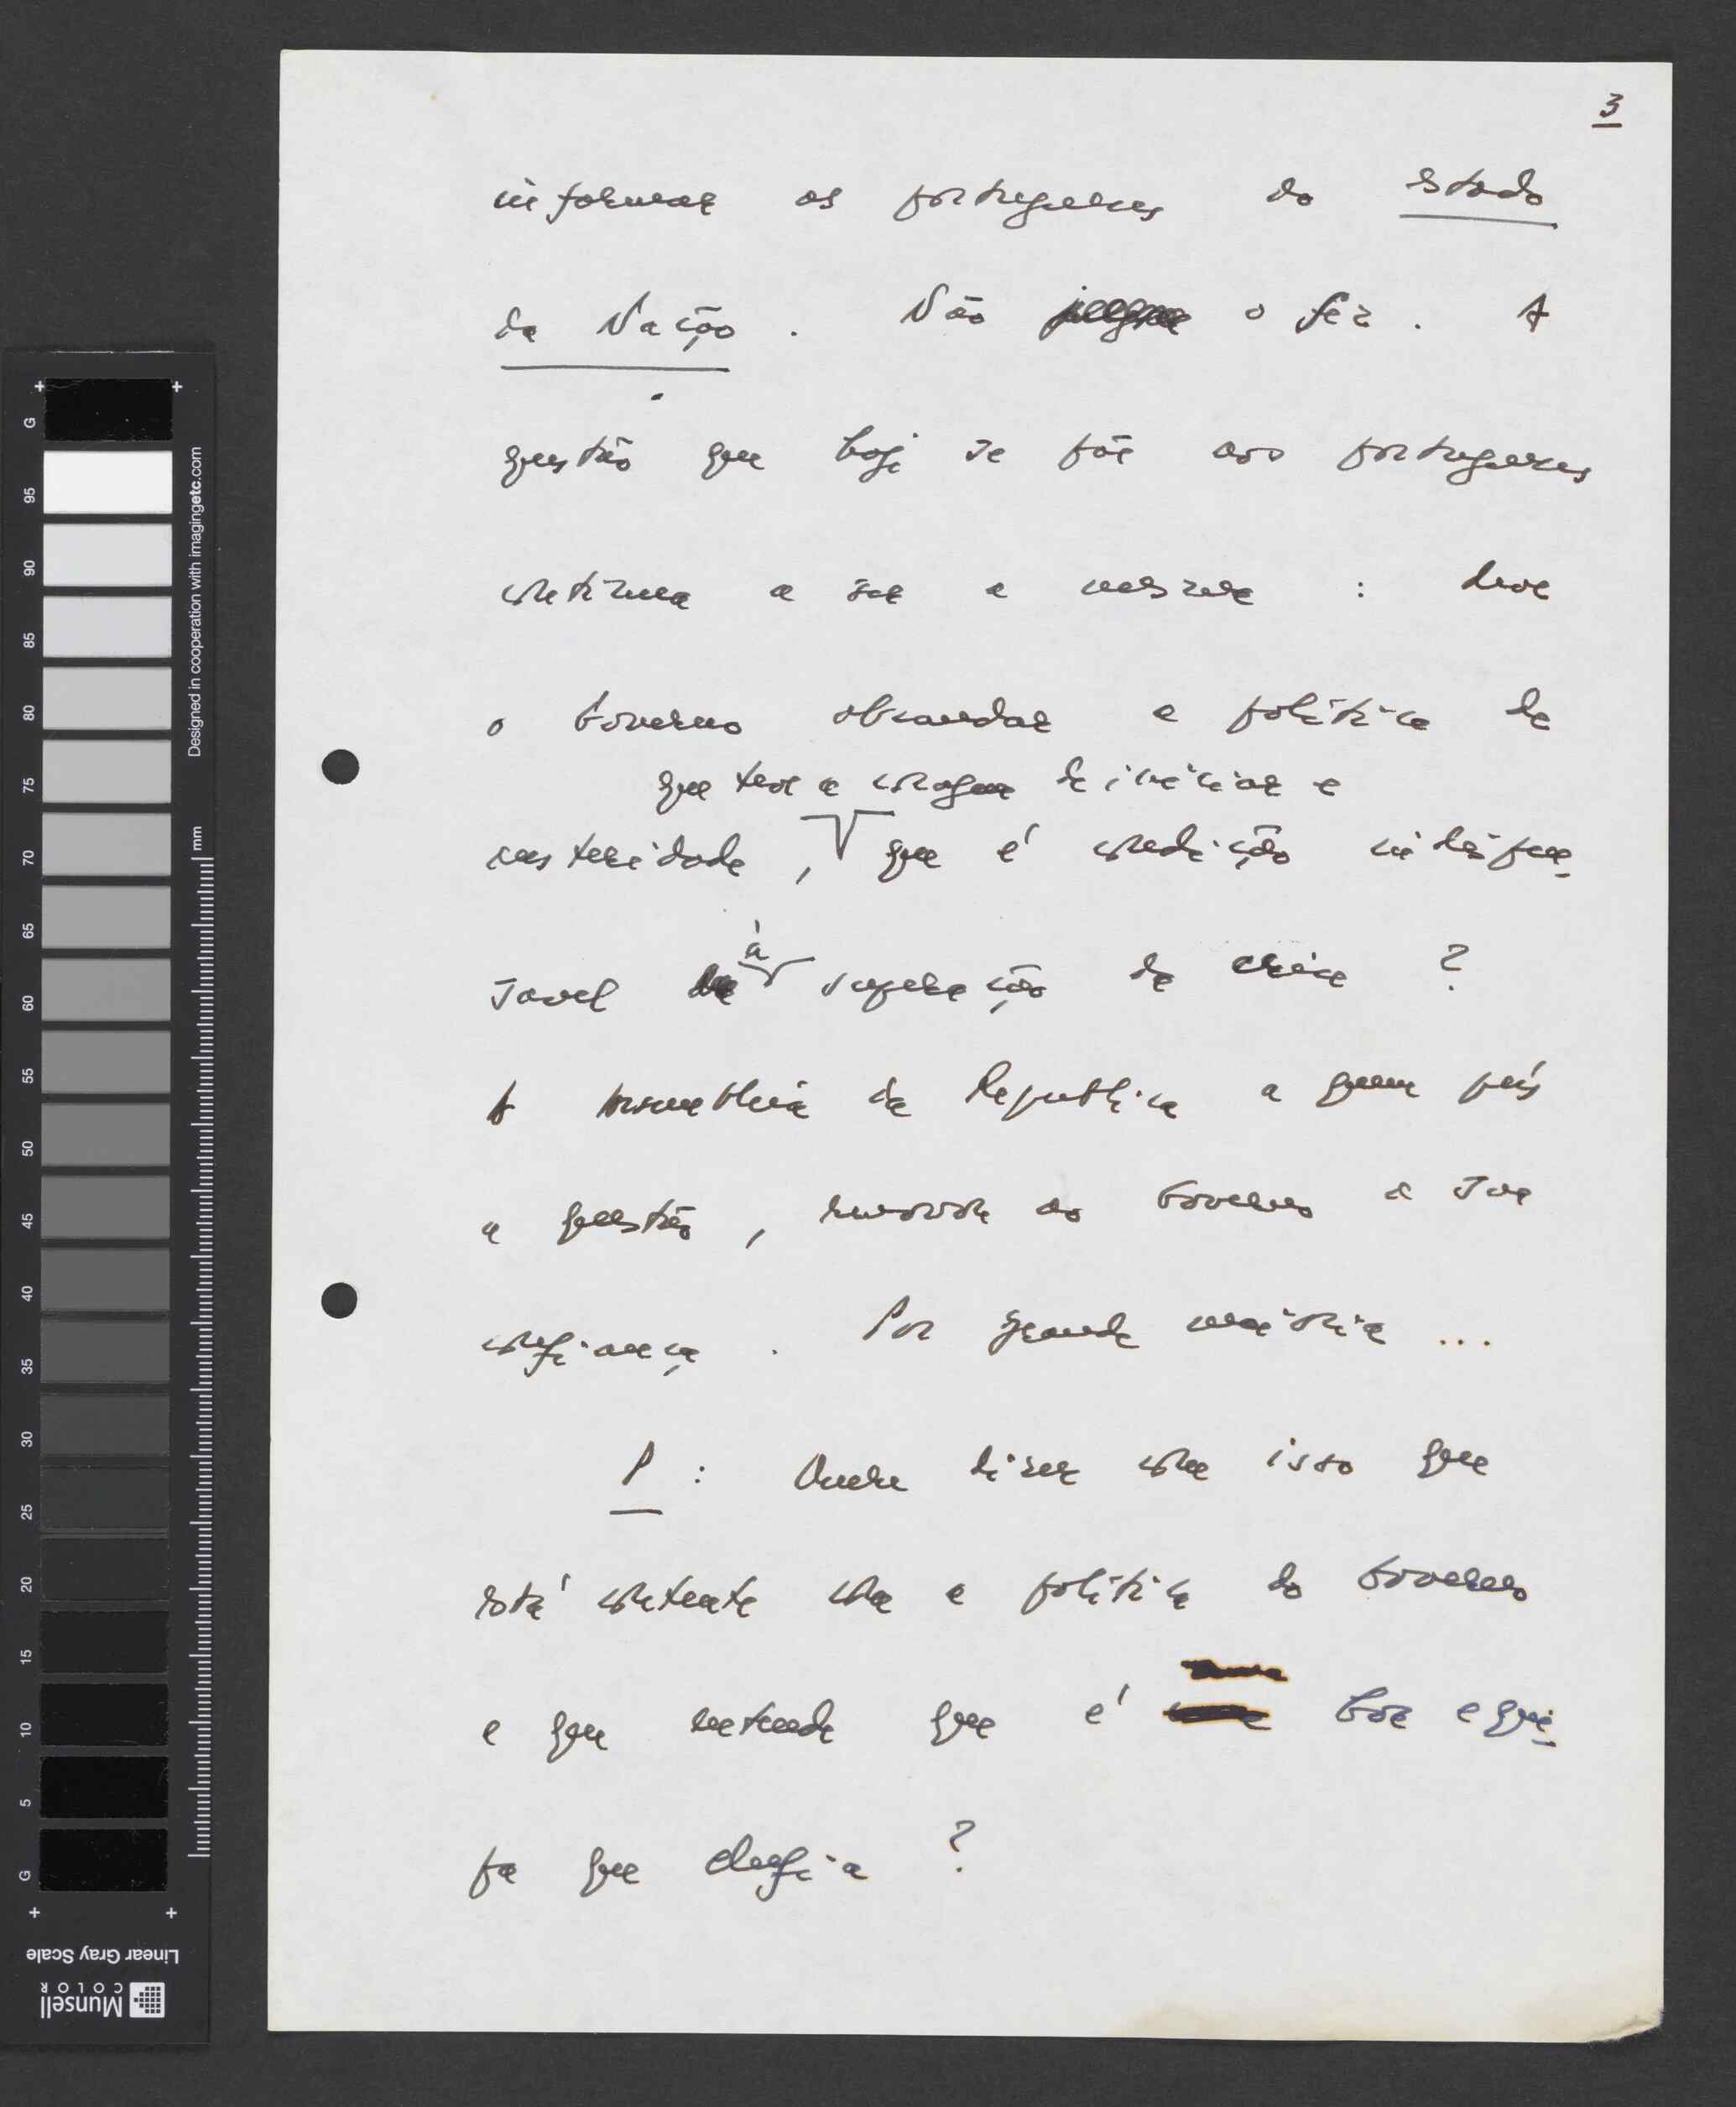 3
informar os portugueses do estado
da Nação. Não o fêz. A
questão que hoje se põe aos portugueses
continua a ser a mesma: deve
o Governo abrandar a política de
que teve a coragem de iniciar e
austeridade, que é condição indispen-
savel à superação da crise?
A Assembleia da Republica a quem pôs
a questão, renovou ao Governo a sua
confiança. Por grande maioria...
P: Quere dizer com isso que
está contente com a política do Governo
e que entende que é boa equi-
pa que chefia?
G
95
90
85
80
75
70
65
60
55
50
45
40
35
30
25
20
15
10
5
G
mm
Designed in cooperation with imagingetc.com
Linear Gray Scale
Munsell
COLOR